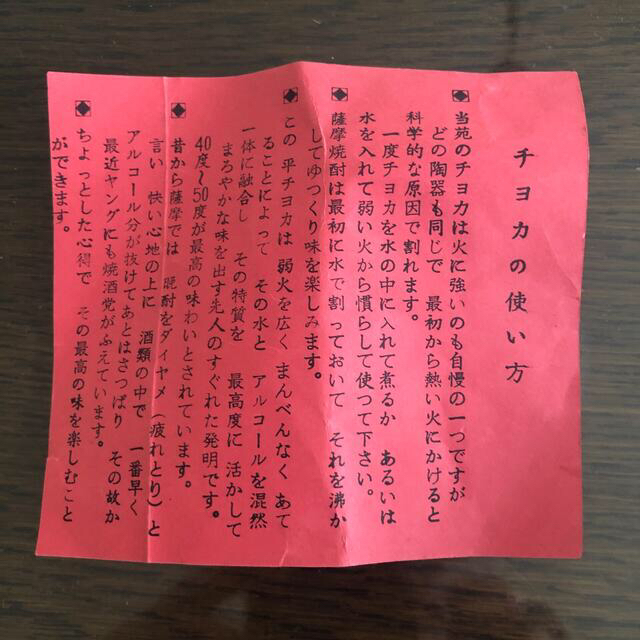 チヨカの使い方
◆当苑のチヨカは火に強いのも自慢の一つですが
どの陶器も同じで 最初から熱い火にかけると
科学的な原因で割れます。
一度チヨカを水の中に入れて煮るか あるいは
水を入れて弱い火から慣らして使つて下さい。
◆薩摩焼酎は最初に水で割っておいて それを沸か
してゆつくり味を楽しみます。
◆この平チヨカは 弱火を広く まんべんなく あて
ることによって その水と アルコールを混然
一体に融合し その特質を 最高度に 活かして
まろやかな味を出す先人のすぐれた発明です。
40度〜50度が最高の味わいとされています。
◆昔から薩摩では 晩酎をダイヤメ(疲れとり)と
言い 快い心地の上に 酒類の中で 一番早く
アルコール分が抜けてあとはさっぱり その故か
最近ヤングにも焼酒党がふえています。
◆ちょっとした心得で その最高の味を楽しむこと
ができます。